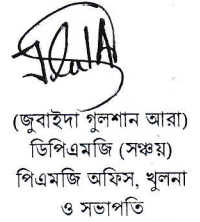 (জুবাইদা গুলশান আরা)
ডিপিএমজি (সঞ্চয়)
পিএমজি অফিস, খুলনা
ও সভাপতি